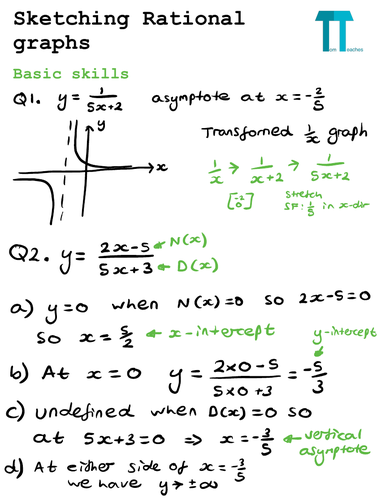 Sketching Rational
graphs
Tom Teaches
Basic skills
Q1. y = 1/(5x+2) asymptote at x = -2/5
y
x
Transformed 1/x graph
1/x → 1/(x+2) → 1/(5x+2)
[-2 0] Stretch
SF: 1/5 in x-dir
Q2. y = (2x-5)/(5x+3) ← N(x) ← D(x)
a) y=0 when N(x)=0 so 2x-5=0
so x = 5/2 ← x-intercept
y-intercept
b) At x=0 y = (2x0-5)/(5x0+3) = -5/3
c) undefined when D(x)=0 so
at 5x+3=0 ⇒ x=-3/5 ← vertical asymptote
d) At either side of x=-3/5
we have y→±∞